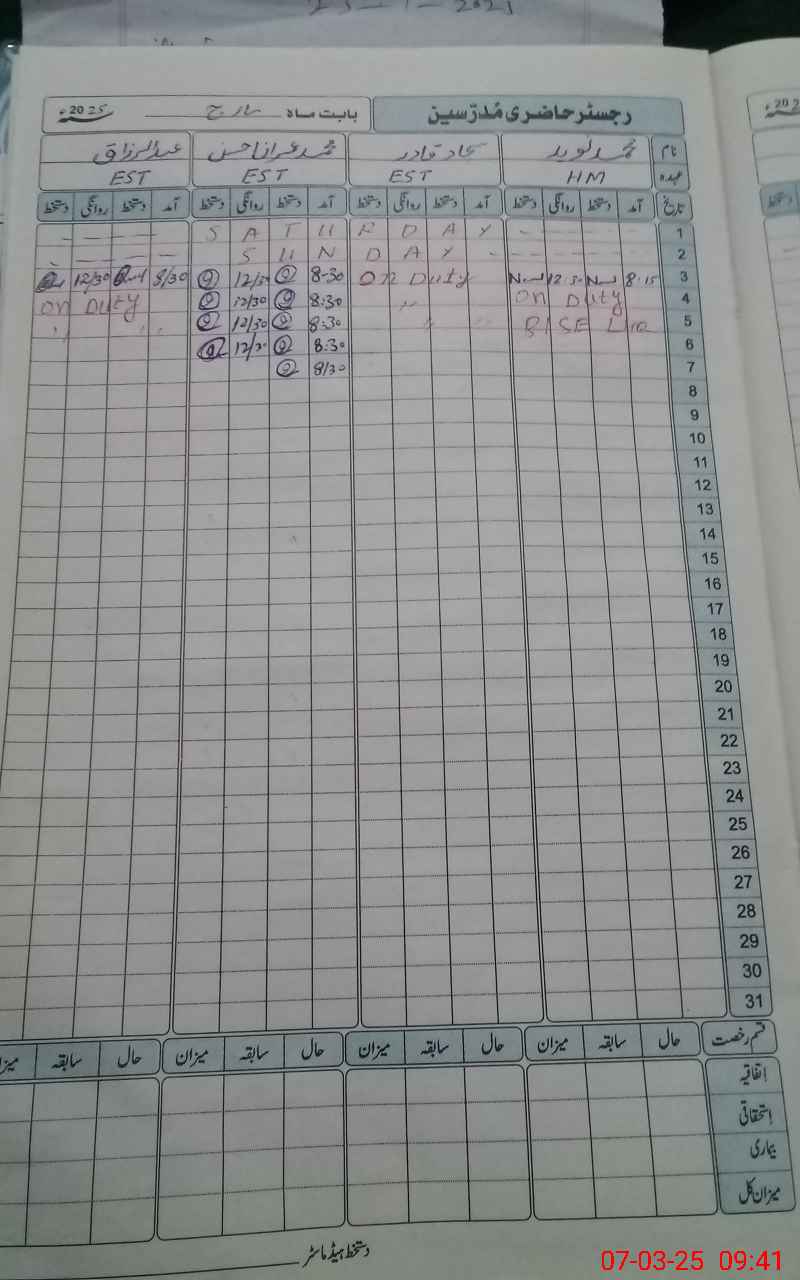 رجسٹر حاضری مُدرّسین بابت ماہ مارچ 2025ء
نام محمد نوید سجاد قادر محمد عمران حسن عبدالرزاق
عہدہ HM EST EST EST
تاریخ آمد دستخط روانگی دستخط آمد دستخط روانگی دستخط آمد دستخط روانگی دستخط آمد دستخط روانگی دستخط
1 S A T U R D A Y
2 S U N D A Y
3 8:15 12:30 On Duty 8-30 12/30 8/30 12/30
4 On Duty 〃 8:30 12/30 On Duty
5 BISE 〃 8:30 12/30 〃
6 8:30 12/30
7 8/30
8
9
10
11
12
13
14
15
16
17
18
19
20
21
22
23
24
25
26
27
28
29
30
31
قسم رخصت حال سابقہ میزان حال سابقہ میزان حال سابقہ میزان حال سابقہ میزان
اتفاقیہ
استحقاقی
بیماری
میزان کل
دستخط ہیڈ ماسٹر
07-03-25 09:41